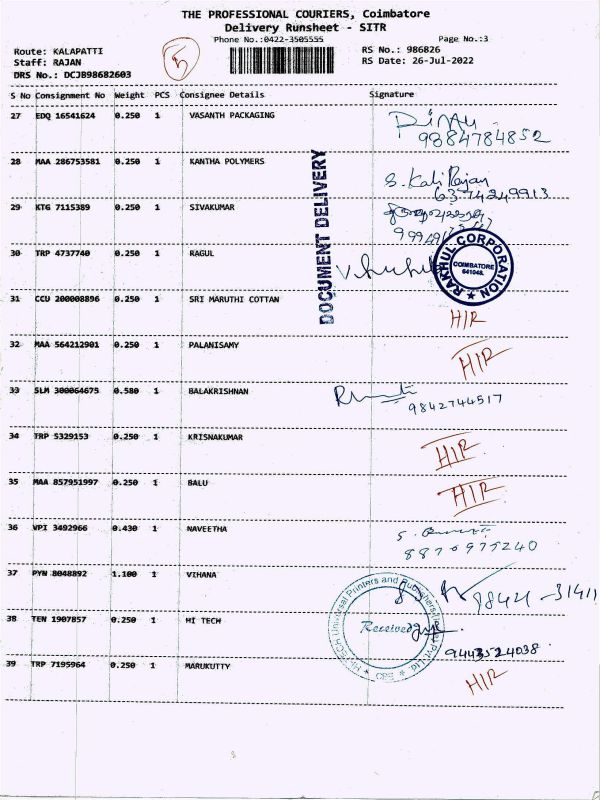 THE PROFESSIONAL COURIERS, Coimbatore
Delivery Runsheet - SITR
Phone No.:0422-3505555
Page No.:3
Route: KALAPATTI
Staff: RAJAN
DRS No.: DCJB98682603
5
RS No.: 986826
RS Date: 26-Jul-2022
S No Consignment No Weight PCS Consignee Details Signature
27 EDQ 16541624 0.250 1 VASANTH PACKAGING
9884784852
28 MAA 286753581 0.250 1 KANTHA POLYMERS S. Kali Rajan
6374249913
29 KTG 7115389 0.250 1 SIVAKUMAR
DOCUMENT DELIVERY
30 TRP 4737740 0.250 1 RAGUL
RAKHUL CORPORATION
COIMBATORE
641048.
31 CCU 200008896 0.250 1 SRI MARUTHI COTTAN HIR
32 MAA 564212901 0.250 1 PALANISAMY HIR
33 SLM 300064675 0.580 1 BALAKRISHNAN
9842744517
34 TRP 5329153 0.250 1 KRISNAKUMAR HIR
35 MAA 857951997 0.250 1 BALU HIR
36 VPI 3492966 0.430 1 NAVEETHA
8870975240
37 PYN 8048892 1.100 1 VIHANA
98421-31411
38 TEN 1907857 0.250 1 HI TECH
Hi-TECH Universal Printers and Publishers (India) Pvt Ltd
Received
CBS
9443524038
39 TRP 7195964 0.250 1 MARUKUTTY HIR